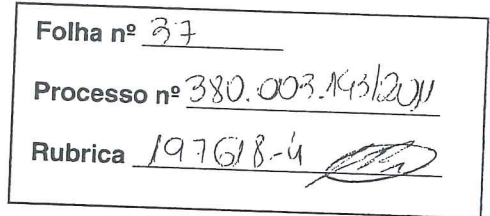 Folha nº 37
Processo nº 380.003.143/2011
Rubrica 197618-4